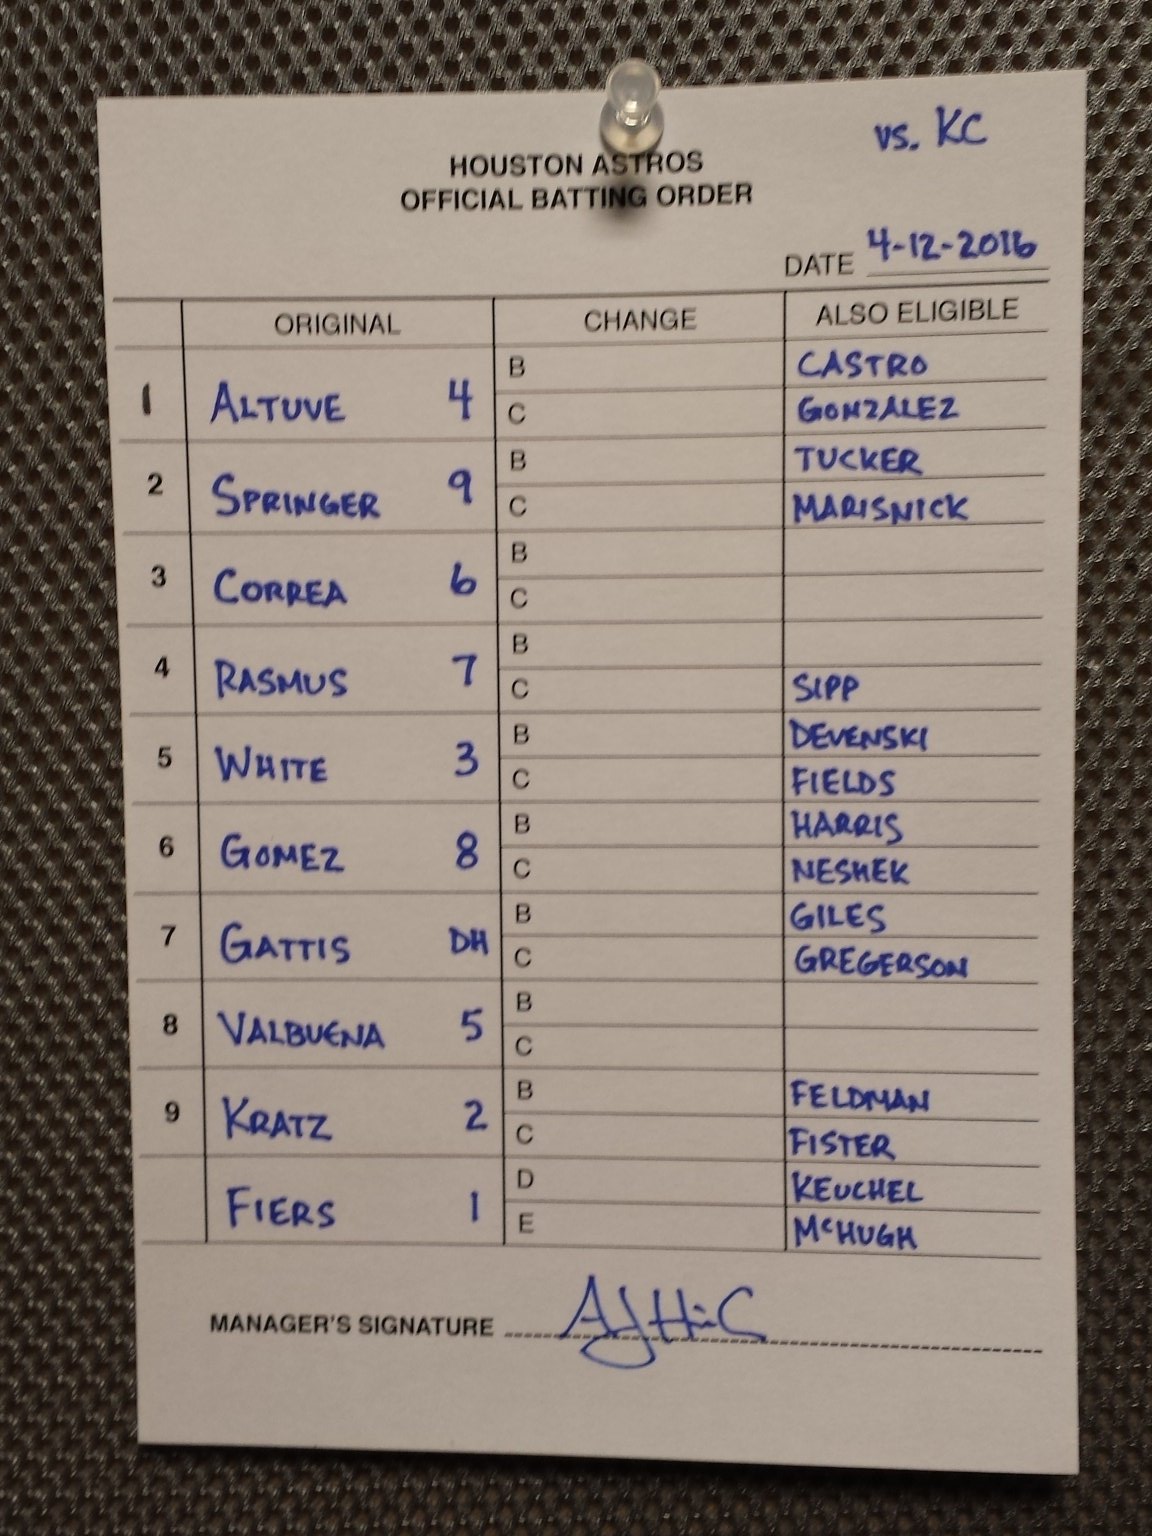 vs. KC
HOUSTON ASTROS
OFFICIAL BATTING ORDER
DATE 4-12-2016
ORIGINAL CHANGE ALSO ELIGIBLE
1 ALTUVE 4 B CASTRO
C GONZALEZ
2 SPRINGER 9 B TUCKER
C MARISNICK
3 CORREA 6 B
C
4 RASMUS 7 B
C SIPP
5 WHITE 3 B DEVENSKI
C FIELDS
6 GOMEZ 8 B HARRIS
C NESHEK
7 GATTIS DH B GILES
C GREGERSON
8 VALBUENA 5 B
C
9 KRATZ 2 B FELDMAN
C FISTER
FIERS 1 D KEUCHEL
E McHUGH
MANAGER'S SIGNATURE